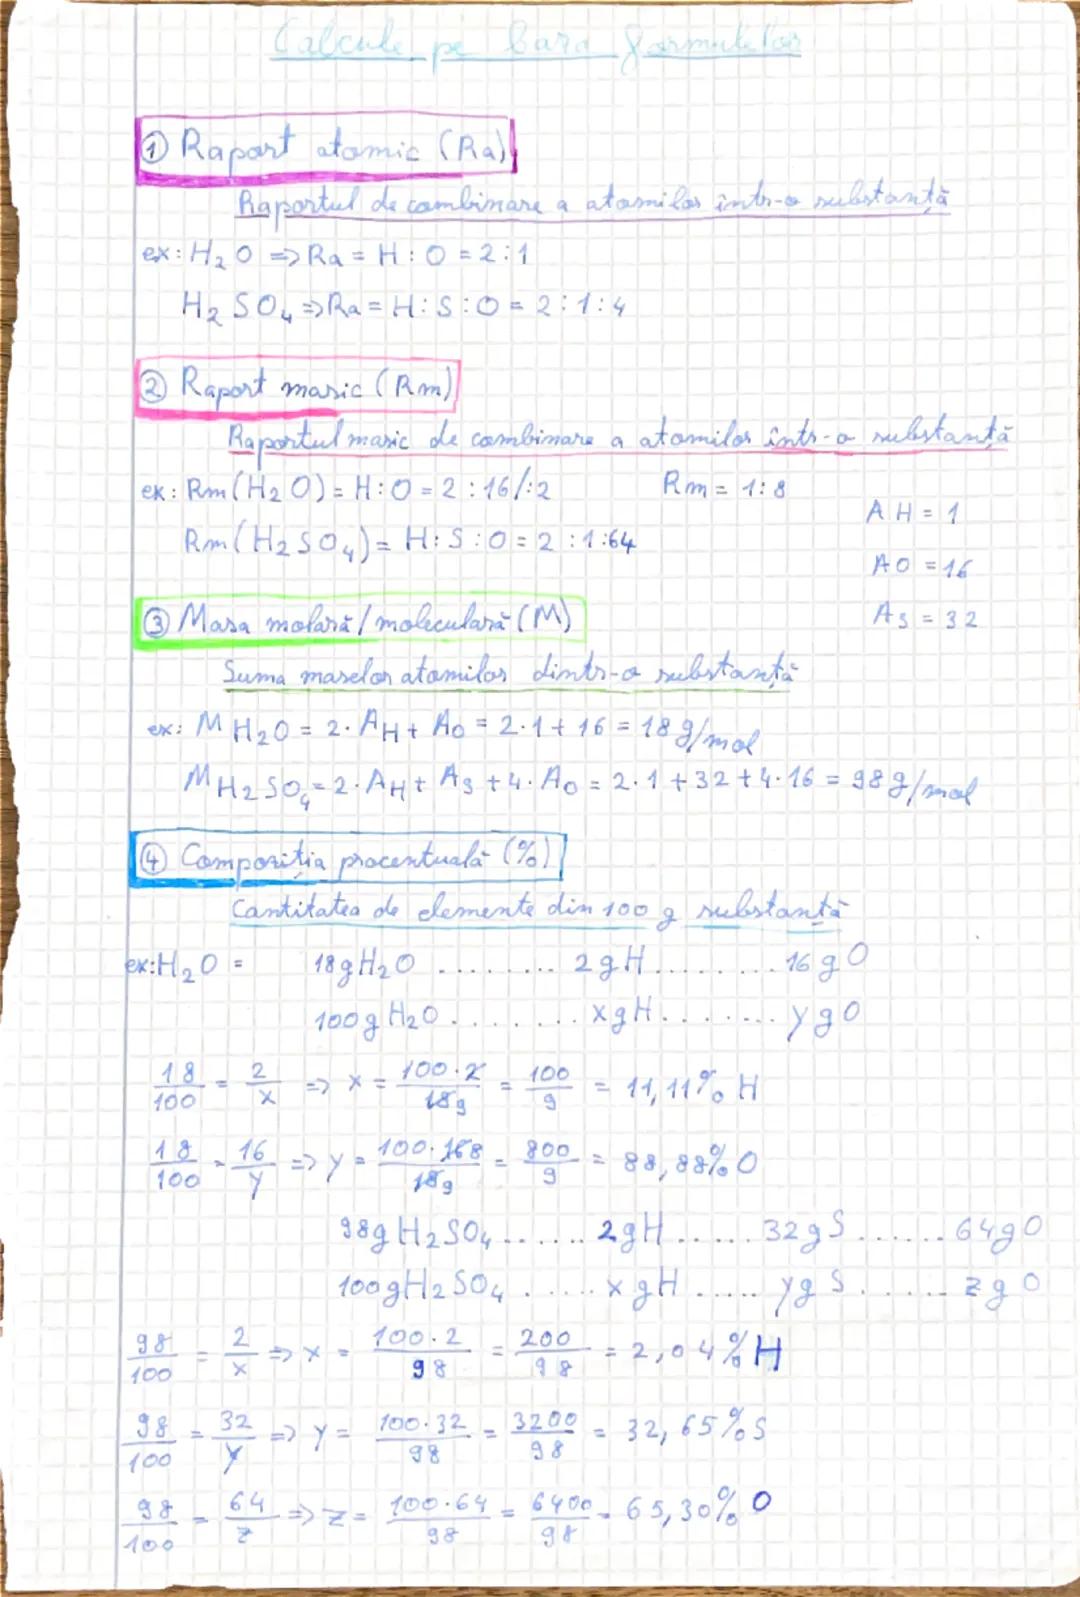 Calcule pe baza formulelor
① Raport atomic (Ra)
Raportul de combinare a atomilor într-o substanță
ex: H₂O => Ra = H : O = 2 : 1
H₂SO₄ => Ra = H : S : O = 2 : 1 : 4
② Raport masic (Rm)
Raportul masic de combinare a atomilor într-o substanță
ex: Rm(H₂O) = H : O = 2 : 16/:2 Rm = 1 : 8
AH = 1
Rm(H₂SO₄) = H : S : O = 2 : 1 : 64
AO = 16
③ Masa molară/moleculară (M)
AS = 32
Suma maselor atomilor dintr-o substanță
ex: M H₂O = 2 · AH + AO = 2 · 1 + 16 = 18 g/mol
M H₂SO₄ = 2 · AH + AS + 4 · AO = 2 · 1 + 32 + 4 · 16 = 98 g/mol
④ Compoziția procentuală (%)
Cantitatea de elemente din 100 g substanță
ex: H₂O = 18g H₂O ........ 2 g H ......... 16 g O
100g H₂O ........ x g H ........ y g O
18/100 = 2/x => x = 100 · 2/18 9 = 100/9 = 11,11% H
18/100 = 16/y => y = 100 · 16 8/18 9 = 800/9 = 88,88% O
98g H₂SO₄ ...... 2 g H ..... 32 g S ...... 64 g O
100g H₂SO₄ ..... x g H ..... y g S ...... z g O
98/100 = 2/x => x = 100 · 2/98 = 200/98 = 2,04% H
98/100 = 32/y => y = 100 · 32/98 = 3200/98 = 32,65% S
98/100 = 64/z => z = 100 · 64/98 = 6400/98 = 65,30% O